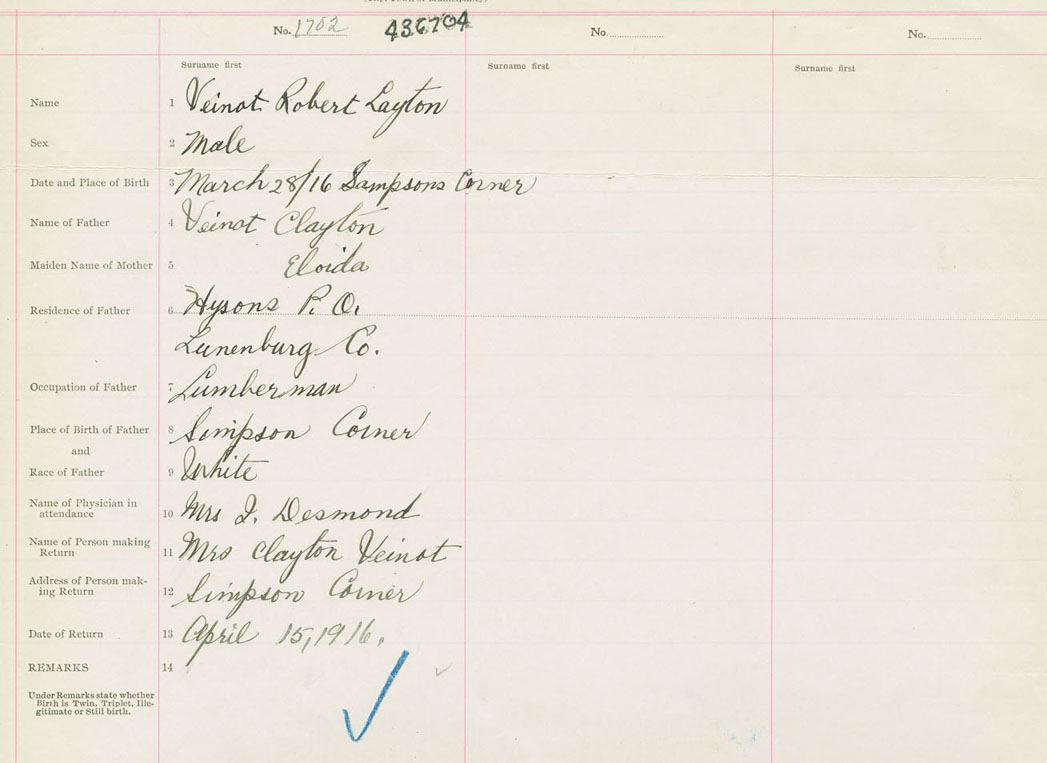 No. 1702 436704 No. No.
Surname first Surname first Surname first
Name 1 Veinot Robert Layton
Sex 2 Male
Date and Place of Birth 3 March 28/16 Sampsons Corner
Name of Father 4 Veinot Clayton
Maiden Name of Mother 5 Eloida
Residence of Father 6 Hysons P. O.
Lunenburg Co.
Occupation of Father 7 Lumberman
Place of Birth of Father 8 Simpson Corner
and
Race of Father 9 White
Name of Physician in
attendance 10 Mrs I. Desmond
Name of Person making
Return 11 Mrs Clayton Veinot
Address of Person mak-
ing Return 12 Simpson Corner
Date of Return 13 April 15, 1916.
REMARKS 14
Under Remarks state whether
Birth is Twin, Triplet, Ille-
gitimate or Still birth.